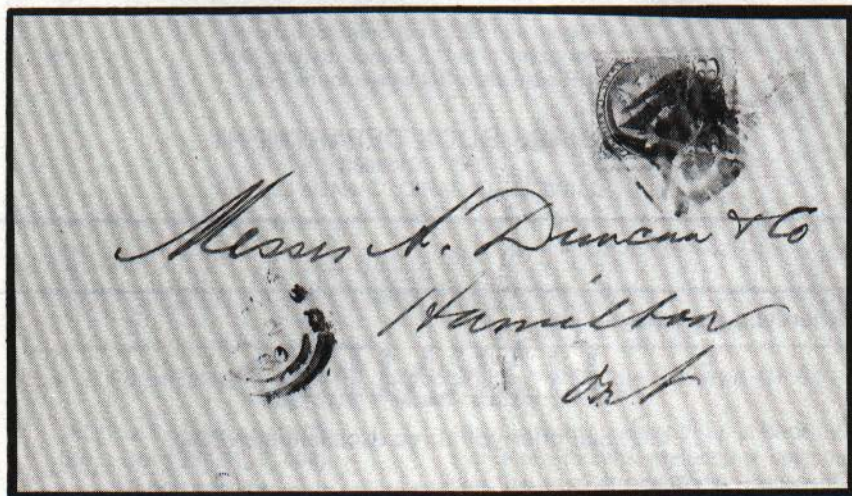 Messrs A. Duncan & Co
Hamilton
Ont